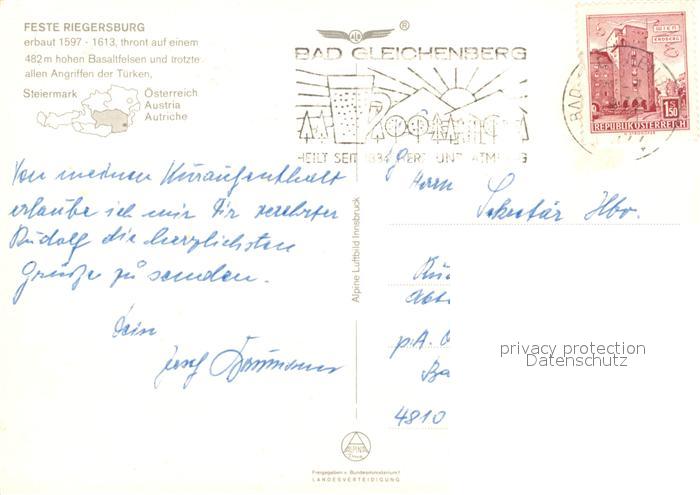 FESTE RIEGERSBURG
erbaut 1597 - 1613, thront auf einem
482 m hohen Basaltfelsen und trotzte
allen Angriffen der Türken,
Steiermark
Österreich
Austria
Autriche
®
BAD GLEICHENBERG
HEILT SEIT 1834 HERZ UND ATMUNG
WIEN
ERDBERG
1.50
REPUBLIK ÖSTERREICH
BAD
Von meinen Kuraufenthalt
erlaube ich mir Dir verehrter
Rudolf die herzlichsten
Grüße zu senden.
Dein
Josef
Alpine Luftbild Innsbruck
Herrn
Sekretär
p.A.
4810
privacy protection
Datenschutz
ALPINE
Freigegeben v. Bundesministerium f.
LANDESVERTEIDIGUNG